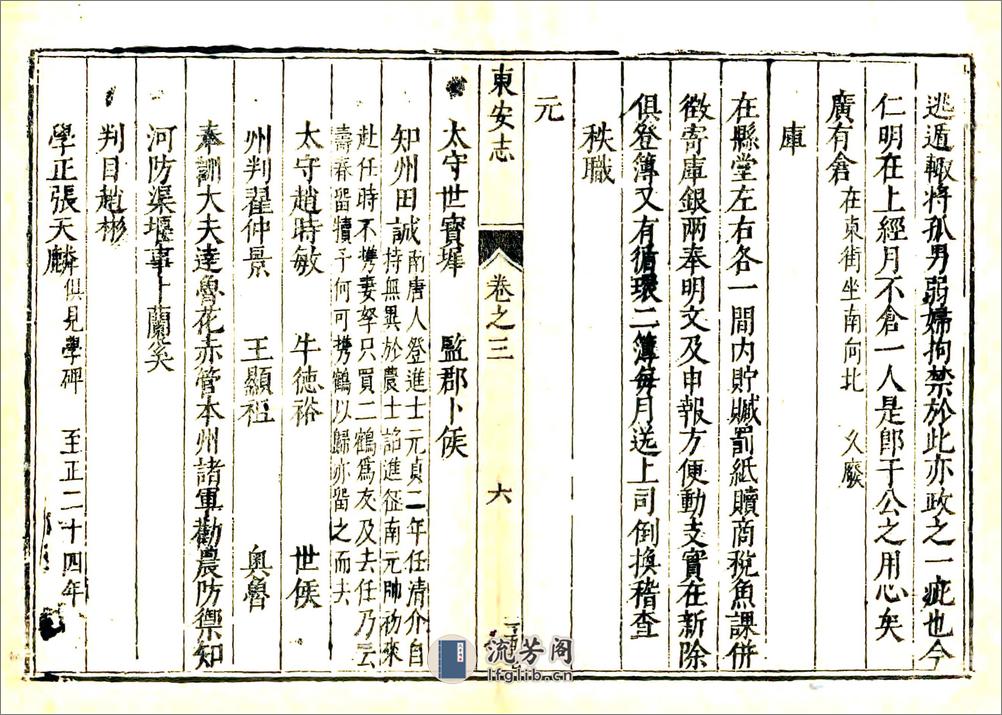 逃遁輙將孤男弱婦拘禁於此亦政之一疵也今
仁明在上經月不倉一人是卽于公之用心矣
廣有倉在東街坐南向北 久廢
庫
在縣堂左右各一間内貯贓罰紙贖商稅魚課併
徵寄庫銀两奉明文及申報方便動支實在新除
俱登簿又有循環二簿每月送上司倒換稽查
秩職
元
東安志 卷之三 六
太守世實 監郡卜侯
知州田誠南唐人登進士元貞二年任清介自
持無異於農士諂進征南元帥初來
赴任時不携妻孥只買二鶴爲友及去任乃云
壽春畱犢予何可携鶴以歸亦畱之而去
太守趙時敏 牛徳裕 世侯
州判翟仲景 王顯祖 奥魯
奉訓大夫達魯花赤管本州諸軍勸農防禦知
河防渠堰事卜蘭奚
判目趙彬
學正張天麟俱見學碑 至正二十四年
流芳阁
lfglib.cn